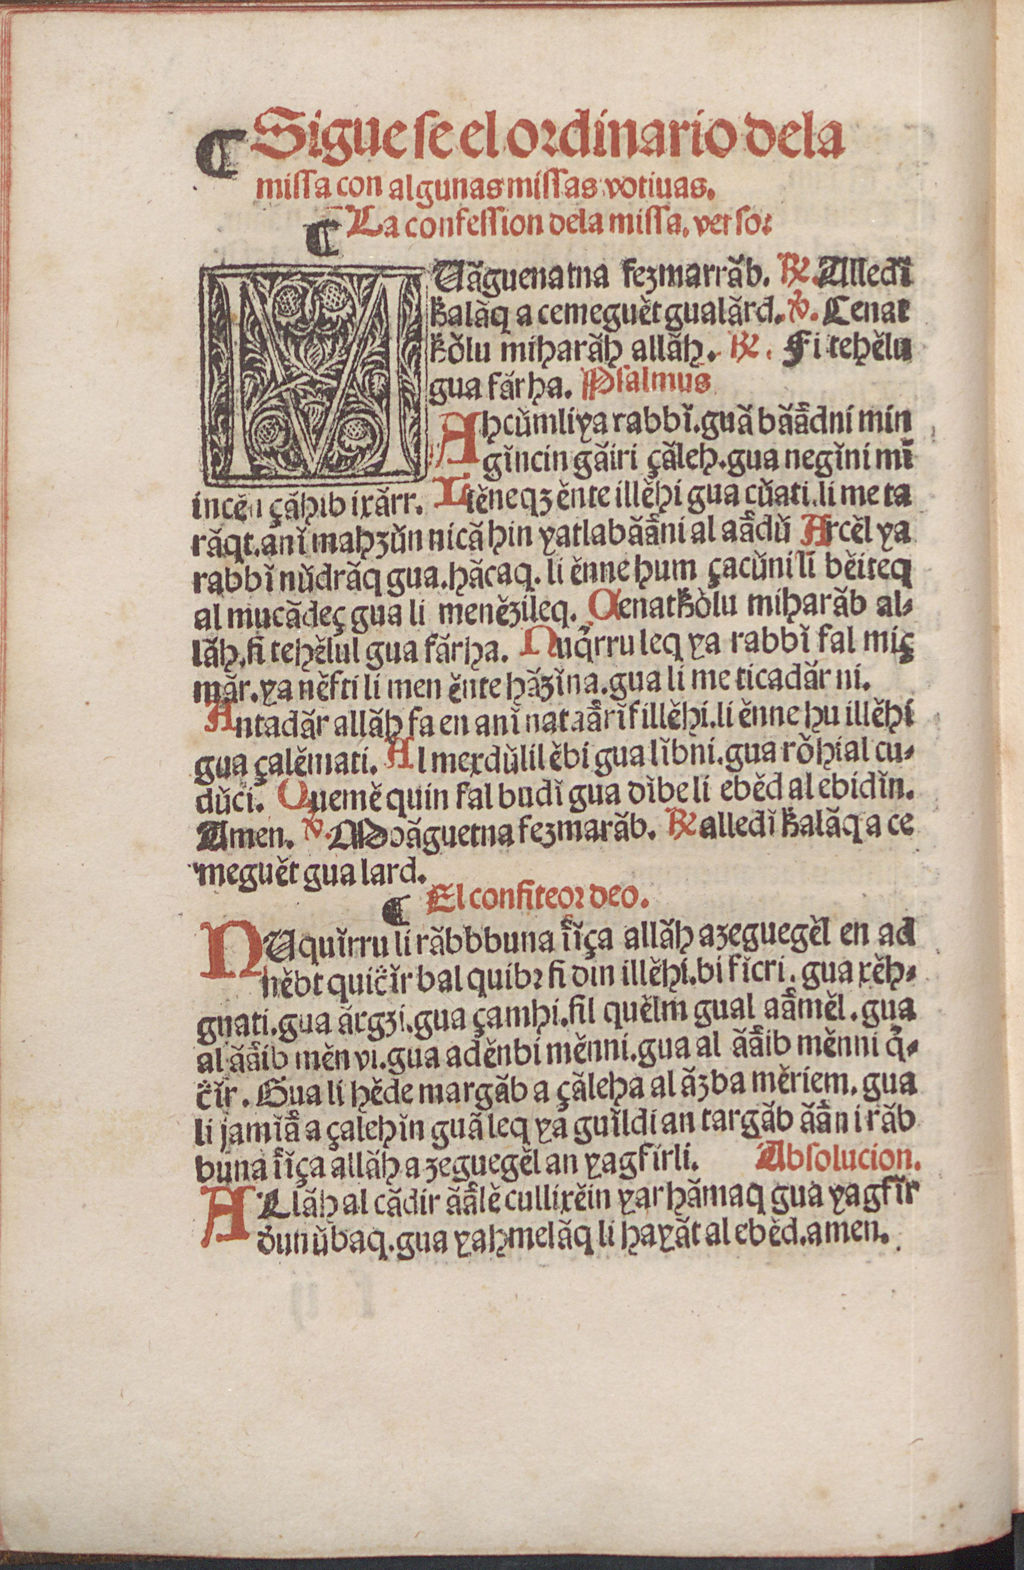 ¶ Sigue se el ordinario dela
missa con algunas missas votiuas.
¶ La confession dela missa. verso:
MUăguenatna fezmarrăb. ℟. Alledĭ
ƀalăq a cemeguĕt gualărd. ℣. Cenat
ƀŏlu miharăh allăh. ℟. Fi tehĕlu
gua făr ha. Psalmus
Ahcŭmli ya rabbĭ. guă băădni min
gĭncin găiri çăleh. gua negĭni mĭ
incĕn çăhib ixărr. Ltĕneqz ĕnte illĕhi gua cŭati. li me ta
răqt. anĭ mahzŭn nică hin yatlabăăni al aădŭ Arcĕl ya
rabbĭ nŭdrăq gua. hăcaq. li ĕnne hum çacŭni lĭ bĕiteq
al mucădeç gua li menĕzileq. Cenatƀŏlu miharăb al-
lăh. fi tehĕlul gua făr ha. Nuq̆rru leq ya rabbĭ fal miç
măr. ya nĕfti li men ĕnte hăzĭna. gua li me ticadăr ni.
Antadăr allăh fa en anĭ nataărĭf illĕhi. li ĕnne hu illĕhi
gua çalĕmati. Al mexdŭlil ĕbi gua lĭbni. gua rŏhial cu-
dŭci. Quemĕ quin fal budĭ gua dĭbe li ebĕd al ebidĭn.
Amen. ℣. Moăguetna fezmarăb. ℟ alledĭ ƀalăq a ce
meguĕt gua lard.
¶ El confiteor deo.
NUquĭrru li răbbbuna ĭĭça allăh azeguegĕl en ad
nĕbt quic̆ĭr bal quibr fi din illĕhi. bi ficri. gua xĕh-
guati. gua ărgzi. gua çamhi. fil quĕlm gual aămĕl. gua
al ăăib mĕn vi. gua adĕnbi mĕnni. gua al ăăib mĕnni q̆-
c̆ĭr. Gua li hĕde margăb a çăleha al ăzba mĕriem. gua
li jamĭă a çalehĭn guă leq ya guĭldi an targăb ăăn i răb
buna ĭĭça allăh a zeguegĕl an yagfirli. Absolucion.
ALlăh al cădir ăălĕ cullixĕin yar hămaq gua yagfĭr
dunŭbaq. gua yahmelăq li hayăt al ebĕd. amen.